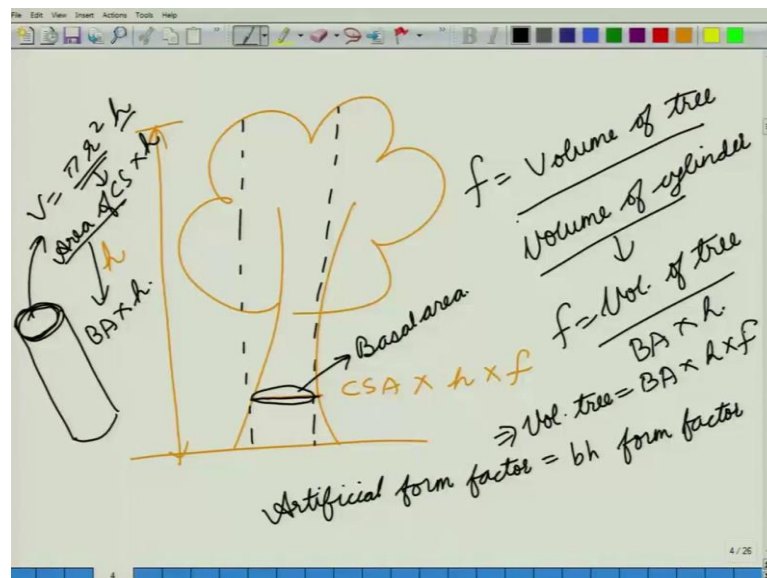 File Edit View Insert Actions Tools Help
B I
V = πr²h
Area of CS × h
h
BA × h.
Basal area.
CSA × h × f
f = Volume of tree
Volume of cylinder
f = Vol. of tree
BA × h.
⇒ Vol. tree = BA × h × f
Artificial form factor = bh form factor
4 / 26
4